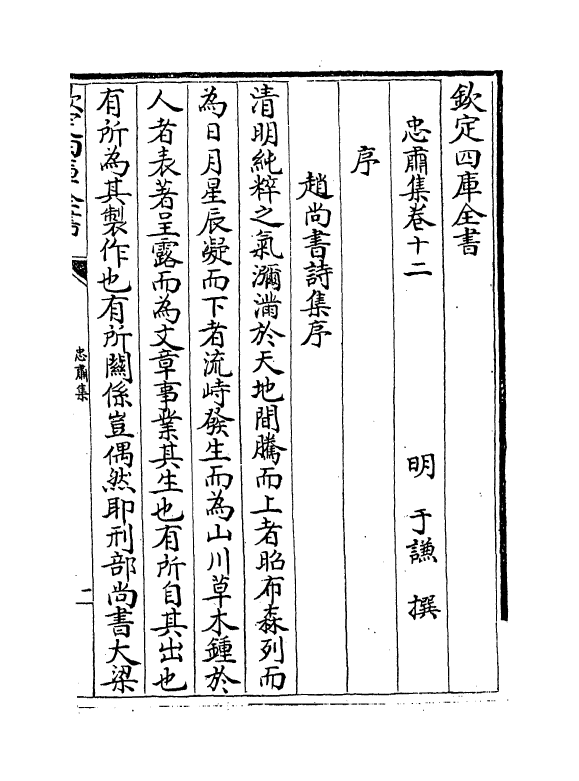 欽定四庫全書
忠肅集卷十二　明　于謙　撰
序
趙尚書詩集序
清明純粹之氣瀰滿於天地間騰而上者昭布森列而
為日月星辰凝而下者流峙發生而為山川草木鍾於
人者表著呈露而為文章事業其生也有所自其出也
有所為其製作也有所關係豈偶然耶刑部尚書大梁
欽定四庫全書
忠肅集
二